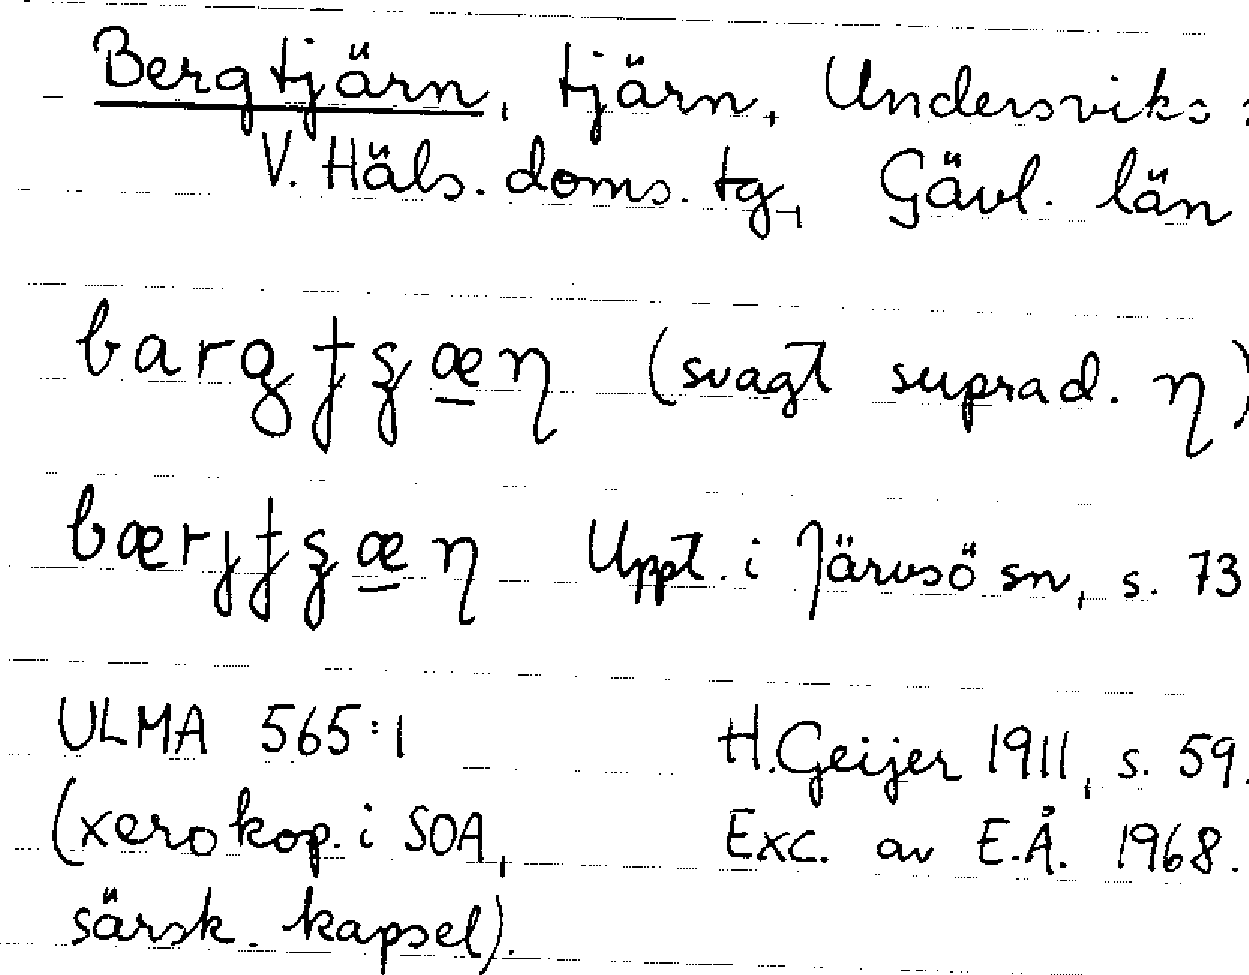 Bergtjärn, tjärn, Undersviks
V. Häls. doms. tg, Gävl. län
(svagt suprad. η)
Uppt. i Järvsö sn, s. 73
ULMA 565:1
H. Geijer 1911, s. 59.
(xerokop. i SOA,
Exc. av E.Å. 1968.
särsk. kapsel).